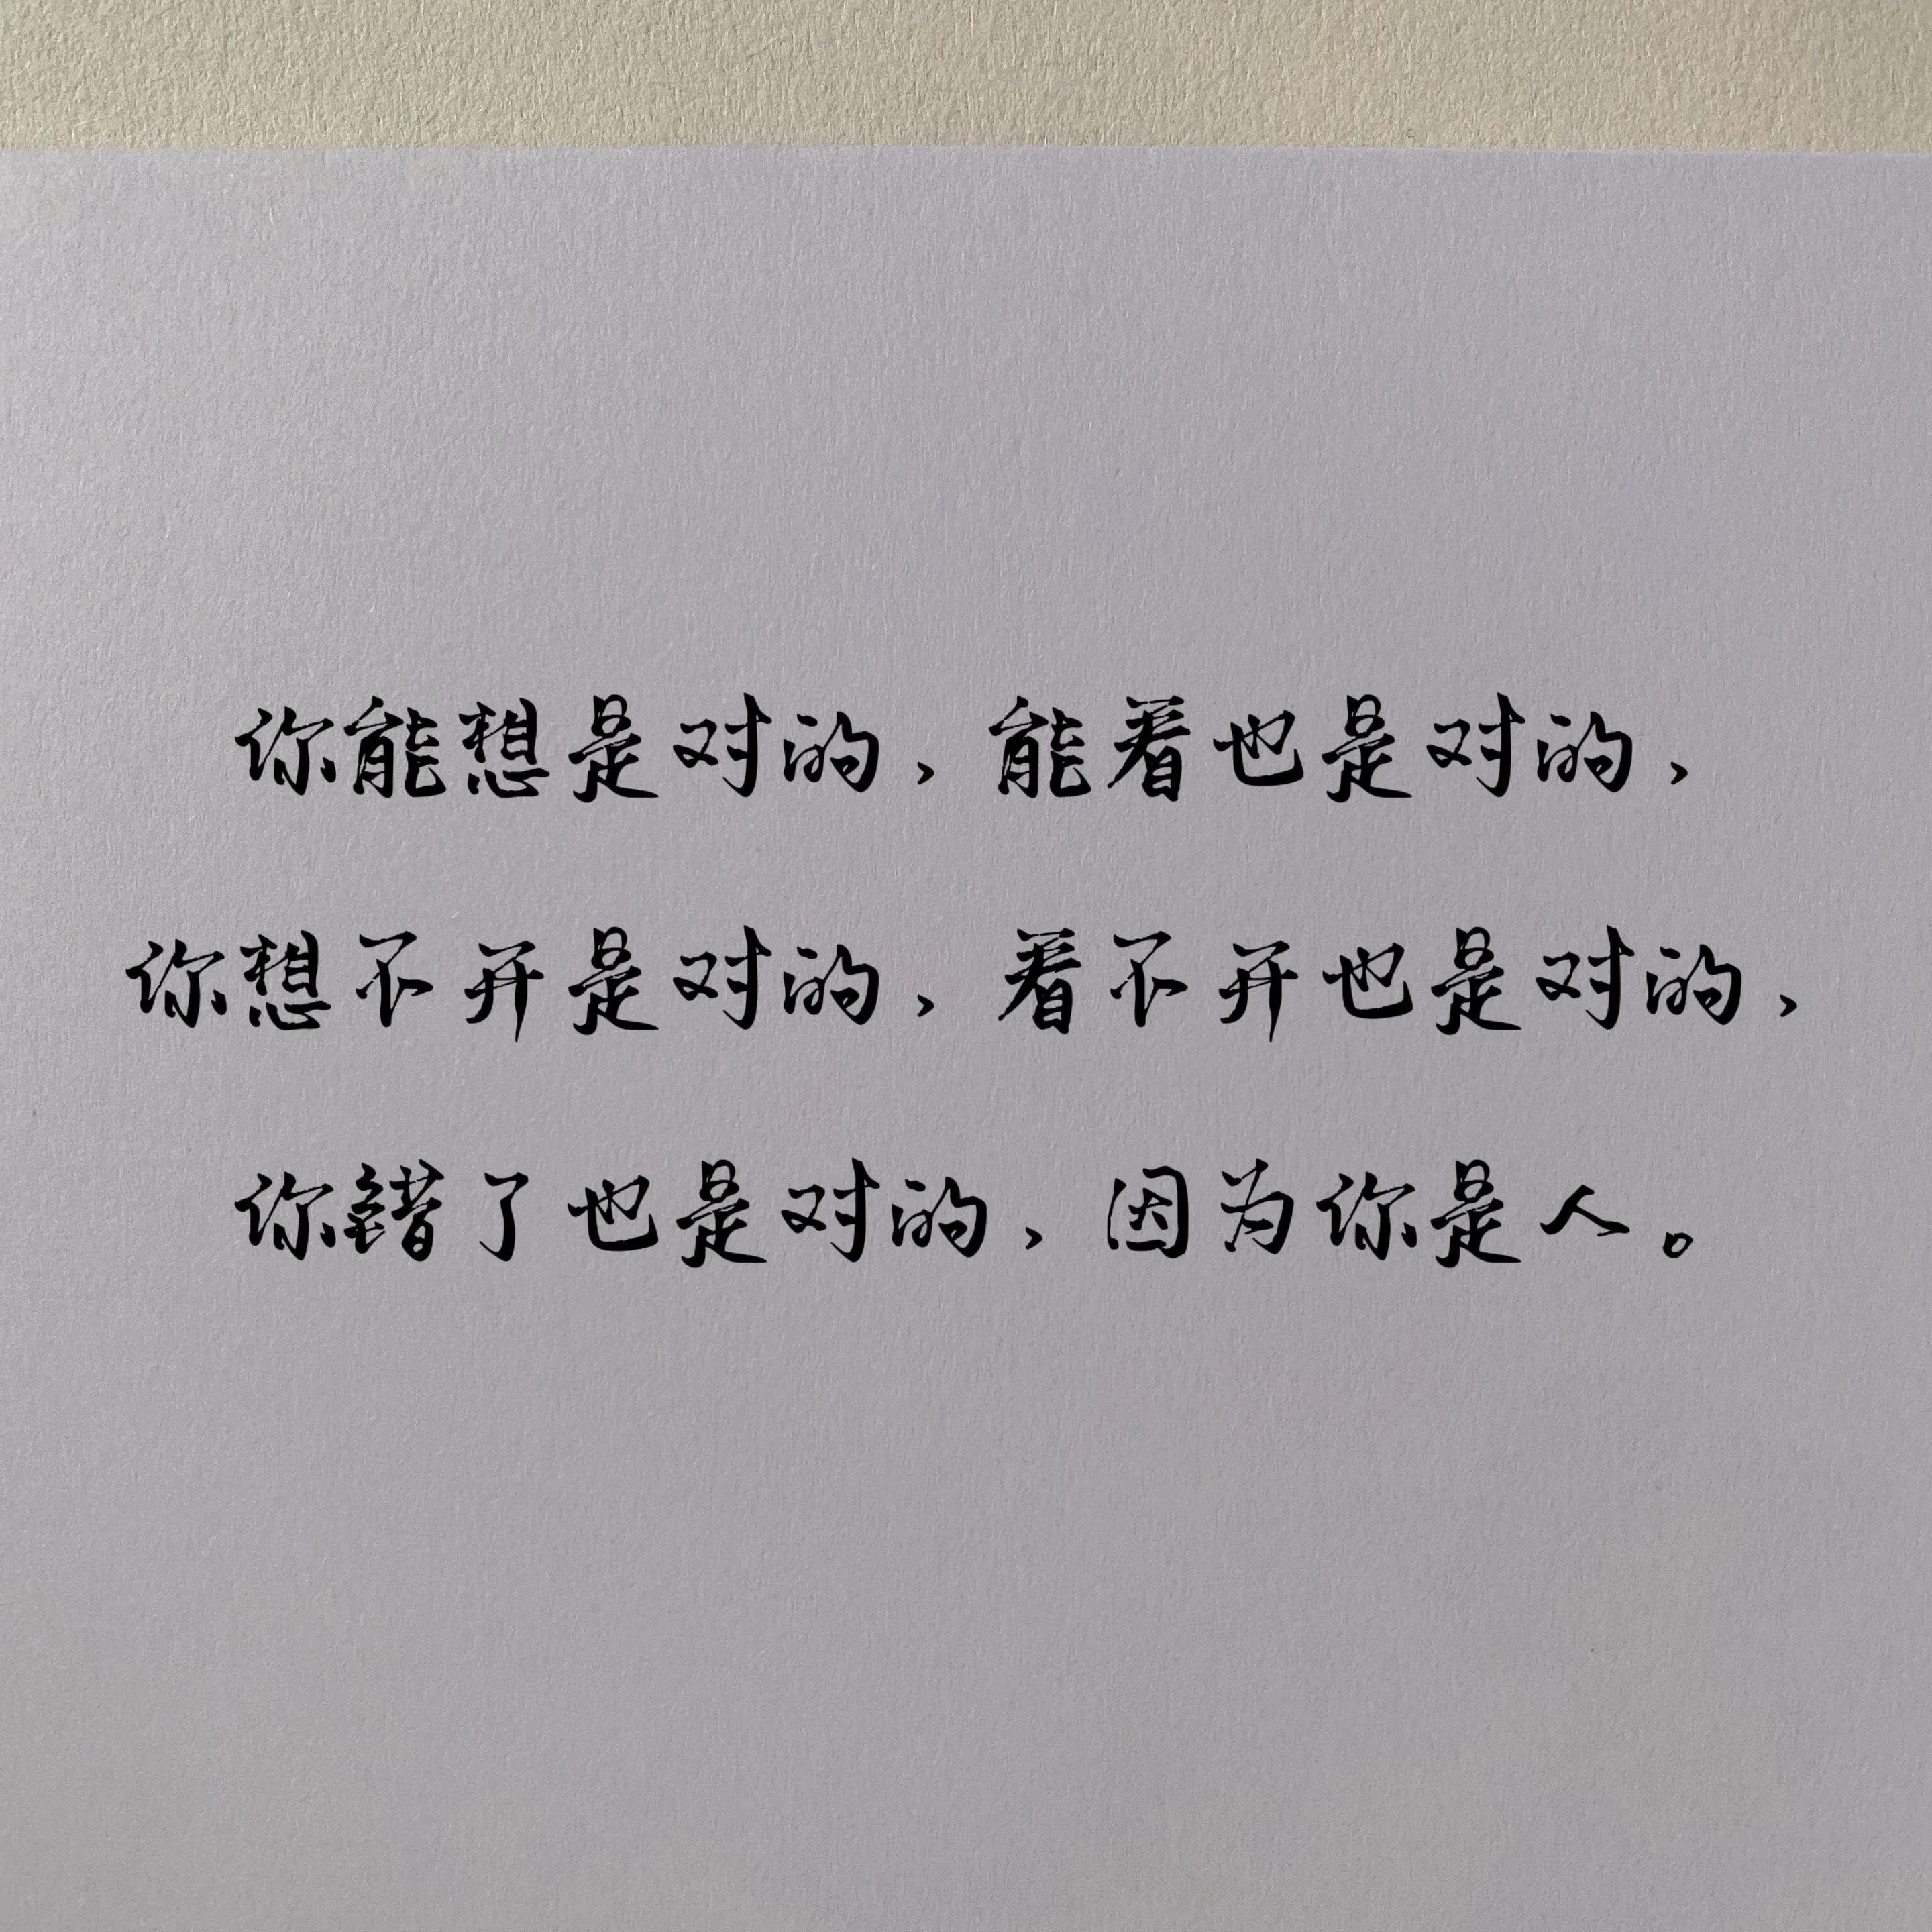 你能想是对的，能看也是对的，
你想不开是对的，看不开也是对的，
你错了也是对的，因为你是人。